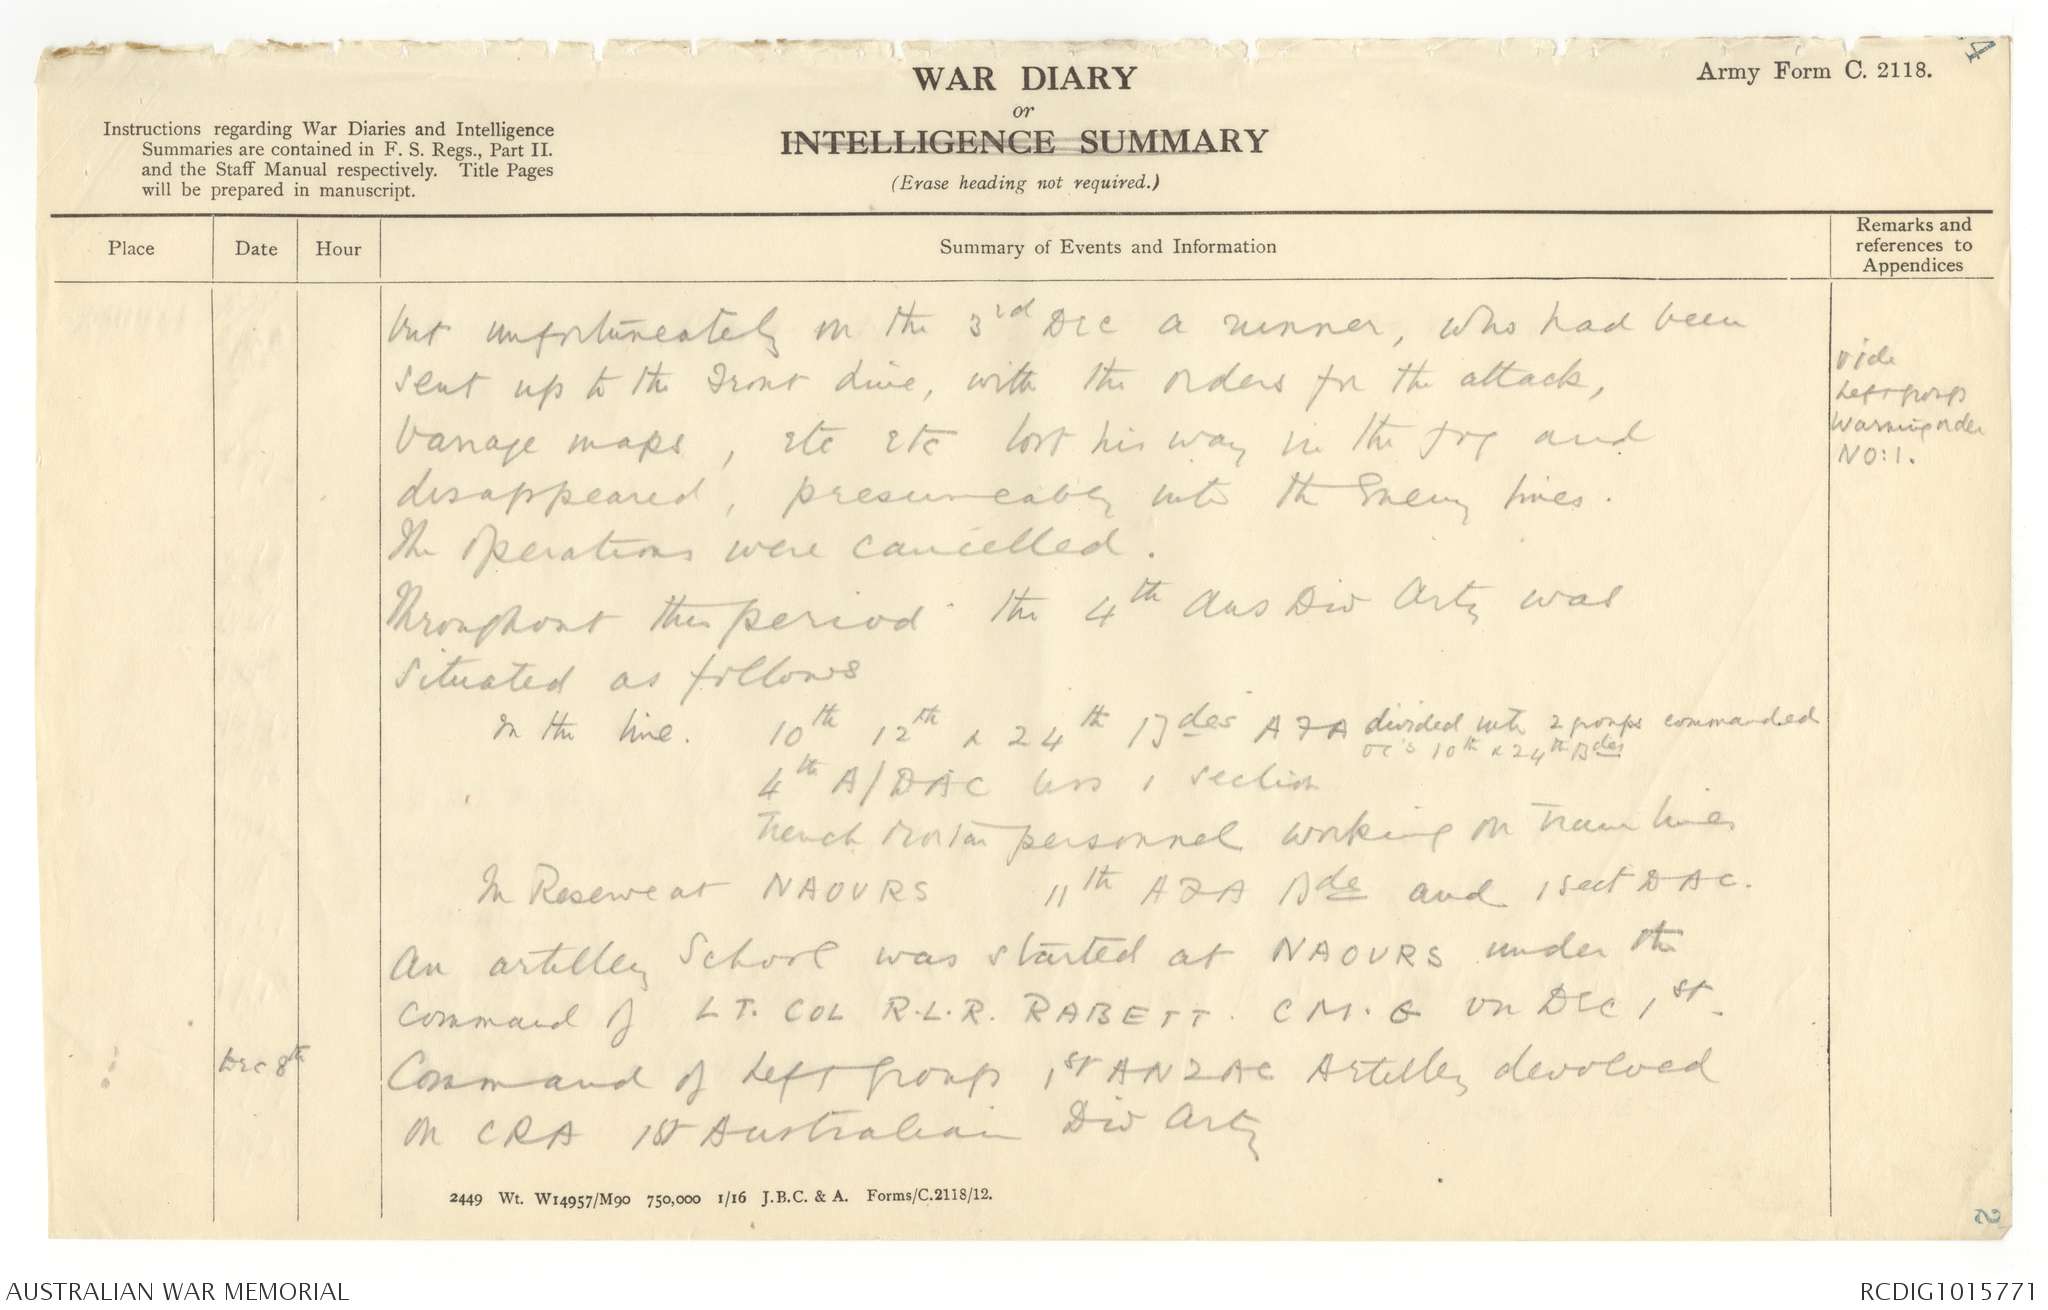 4
WAR DIARY
or
INTELLIGENCE SUMMARY
(Erase heading not required.)
Army Form C. 2118.
Instructions regarding War Diaries and Intelligence
Summaries are contained in F. S. Regs., Part II.
and the Staff Manual respectively. Title Pages
will be prepared in manuscript.
Place
Date
Hour
Summary of Events and Information
Remarks and
references to
Appendices
but unfortuneately on the 3rd Dec a runner, who had been
sent up to the Front line, with the orders for the attack,
barrage maps, etc etc lost his way in the fog and
disappeared, presumeably into the Enemy lines.
The operations were cancelled.
vide
Left group
Warning order
NO: 1.
Throughout this period the 4th Aus Div Arty was
situated as follows
In the line. 10th 12th & 24th Bdes AFA divided into 2 groups commanded
OC's 10th & 24th Bdes
4th A/DAC less 1 section
Trench Mortar personnel working on Tram lines
In Reserve at NAOURS 11th AFA Bde and 1 sect DAC.
An artillery School was started at NAOURS under the
command of LT. COL R.L.R. RABETT. C M. G on DEC 1st.
Dec 8th
Command of Left group 1st ANZAC Artillery devolved
on CRA 1st Australian Div Arty
2449 Wt. W14957/M90 750,000 1/16 J.B.C. & A. Forms/C.2118/12.
2
AUSTRALIAN WAR MEMORIAL
RCDIG1015771